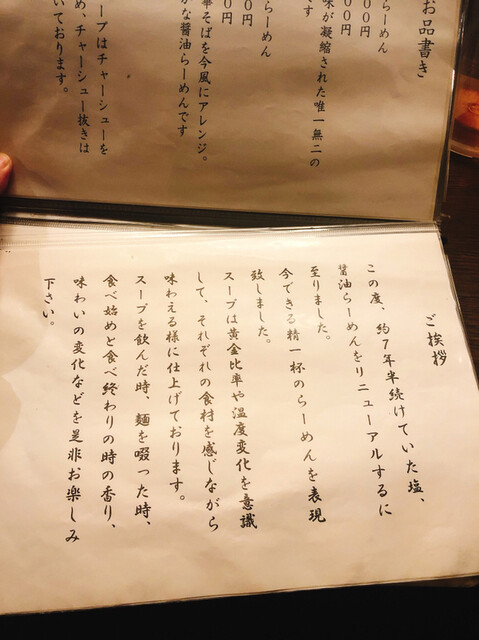 お品書き
らーめん
00円
00円
味が凝縮された唯一無二の
です
らーめん
00円
00円
華そばを今風にアレンジ。
かな醤油らーめんです
ープはチャーシューを
め、チャーシュー抜きは
いております。
ご挨拶
この度、約7年半続けていた塩、
醤油らーめんをリニューアルするに
至りました。
今できる精一杯のらーめんを表現
致しました。
スープは黄金比率や温度変化を意識
して、それぞれの食材を感じながら
味わえる様に仕上げております。
スープを飲んだ時、麺を啜った時、
食べ始めと食べ終わりの時の香り、
味わいの変化などを是非お楽しみ
下さい。